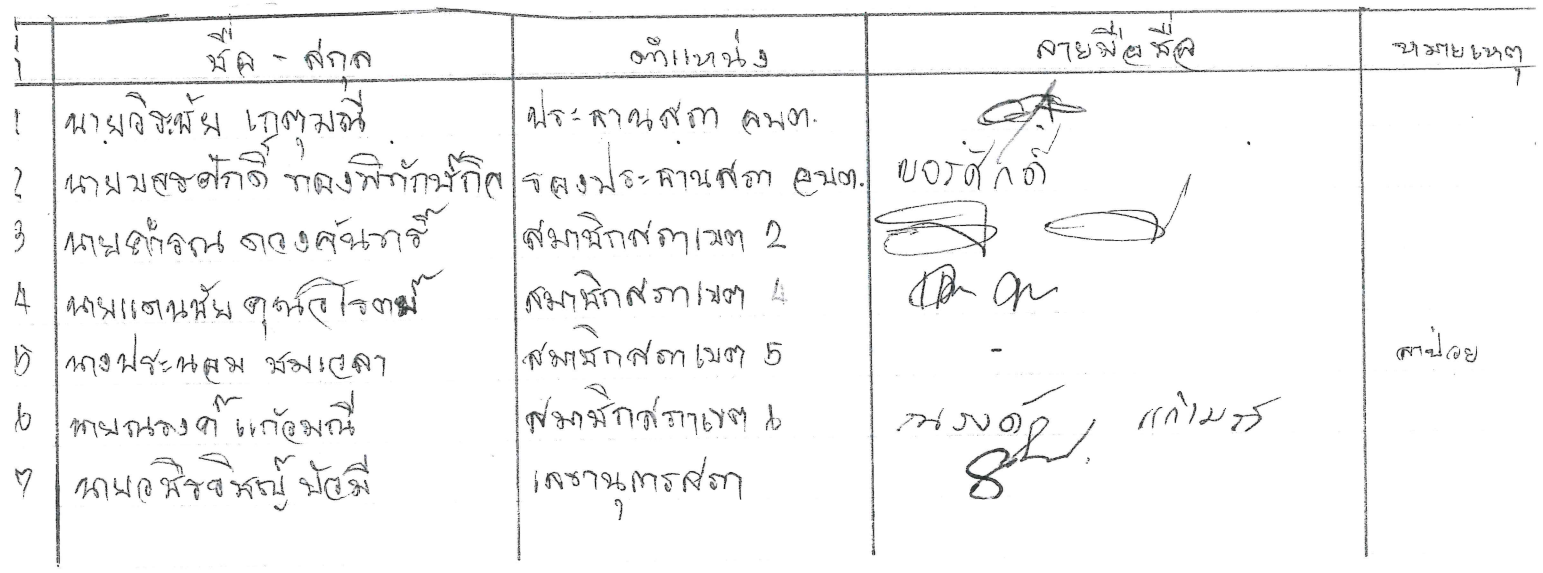 ที่ ชื่อ - สกุล ตำแหน่ง ลายมือชื่อ หมายเหตุ
1 นายวิระชัย เกตุมณี ประธานสภา อบต.
2 นายบอรศักดิ์ ทองพิทักษ์กิจ รองประธานสภา อบต. บอรศักดิ์
3 นายดำรณ ดวงจันทร์ สมาชิกสภาเขต 2
4 นายแดนชัย สมาชิกสภาเขต 4
5 นางประนอม ชมเวลา สมาชิกสภาเขต 5 - ลาป่วย
6 นายณรงค์ แก้วมณี สมาชิกสภาเขต 6 ณรงค์ แก้วมณี
7 นายวชิรวิชญ์ บัวมี เลขานุการสภา